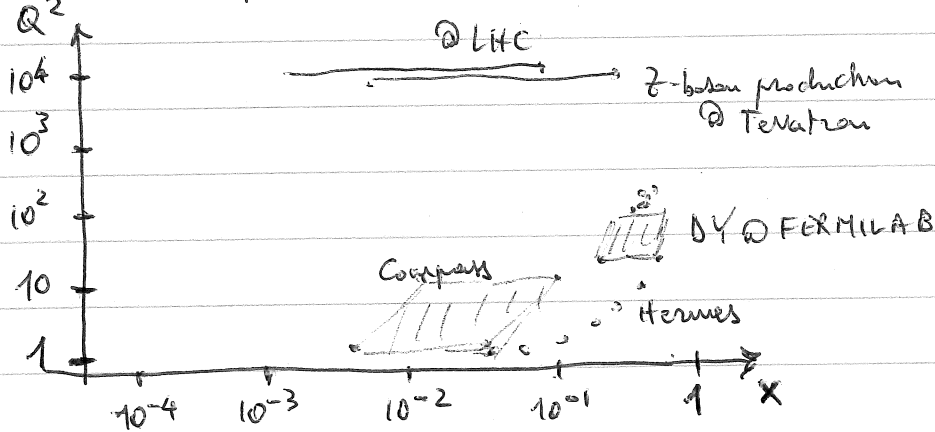 Q²
@ LHC
10⁴
Z-boson production
@ Tevatron
10³
10²
DY @ FERMILAB
Compass
10
Hermes
1
10⁻⁴ 10⁻³ 10⁻² 10⁻¹ 1 X